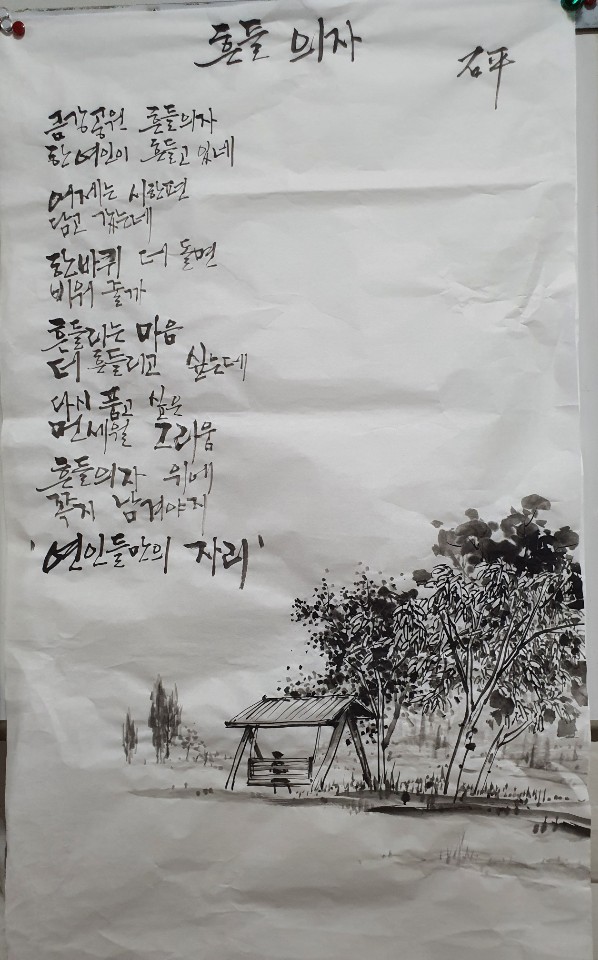 흔들 의자
石平
금강공원 흔들의자
한 여인이 흔들고 있네
어제는 시한편
담고 갔는데
한바퀴 더 돌면
비워 줄까
흔들리는 마음
더 흔들리고 싶은데
다시 품고 싶은
먼 세월 그리움
흔들의자 위에
쪽지 남겨야지
'연인들만의 자리'